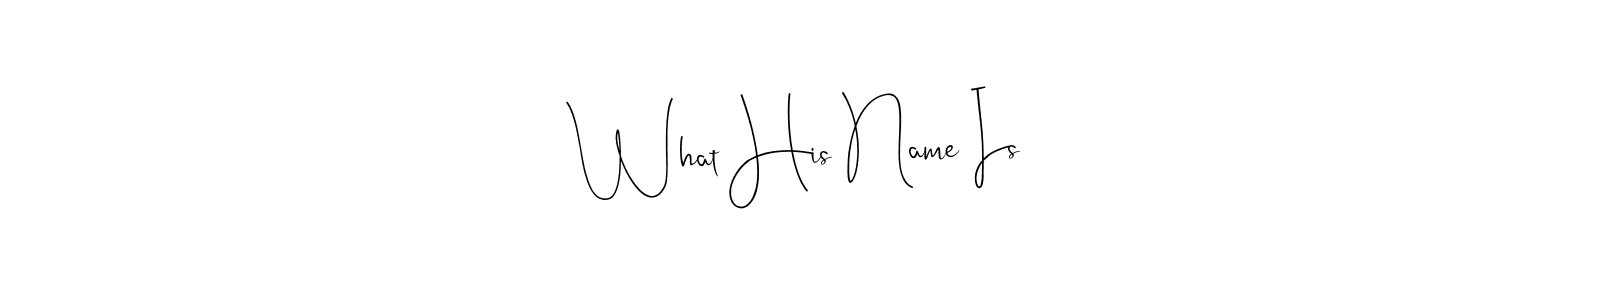 What His Name Is